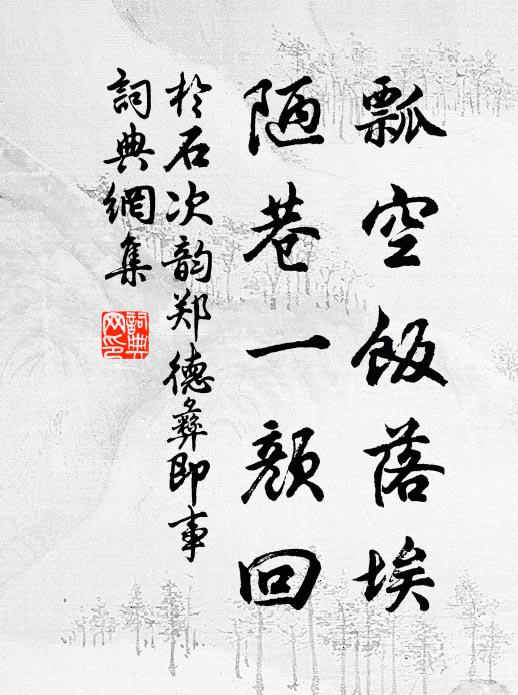 瓢空飯落埃
陋巷一顏回
於石次韵郑德彝即事
詞典網集
詞典網印